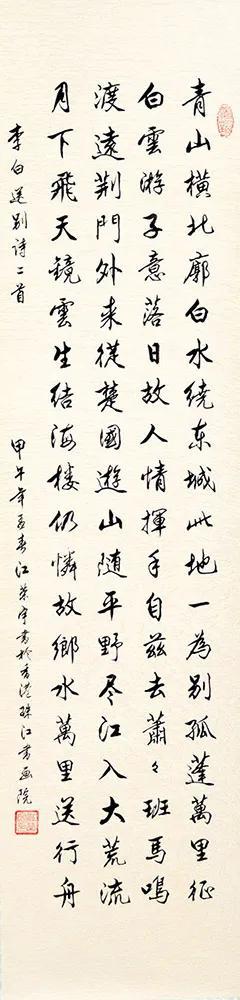 青山橫北廓白水繞东城此地一為別孤蓬萬里征
白雲游子意落日故人情揮手自兹去蕭々班馬鳴
渡遠荆門外来從楚國遊山随平野尽江入大荒流
月下飛天鏡雲生结海樓仍憐故鄉水萬里送行舟
李白送别诗二首
甲午年孟春江宇書於香港珠江書画院